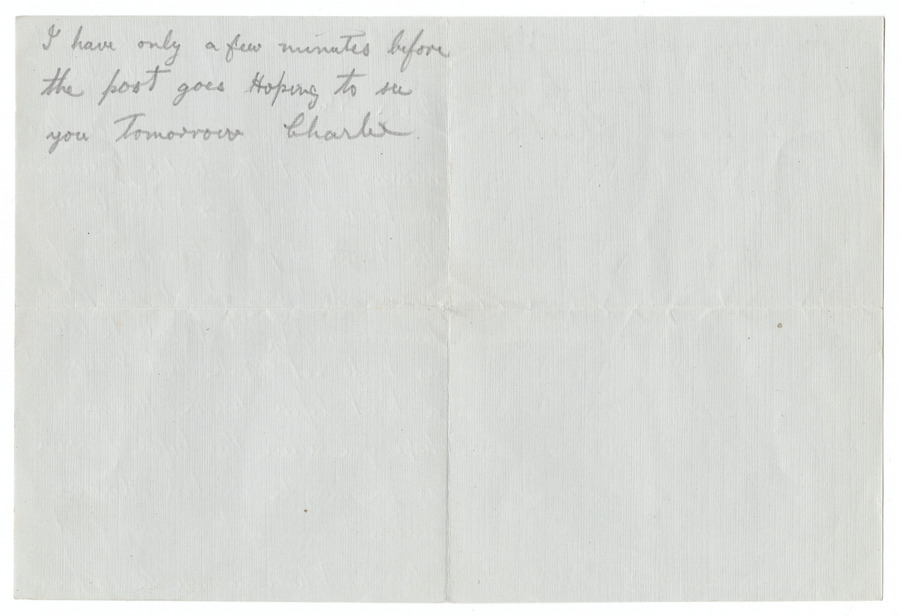 I have only a few minutes before
the post goes Hoping to see
you Tomorrow Charlie.